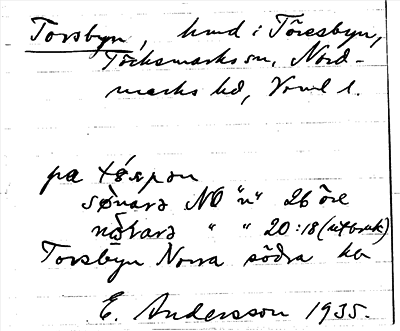 Torsbyn, hmd i Töresbyn,
Töcksmarks sn, Nord-
marks hd, Vrml l.
på
NO "n" 26 öre
" " 20:18 (utbruk)
Torsbyn Norra södra
E. Andersson 1935.